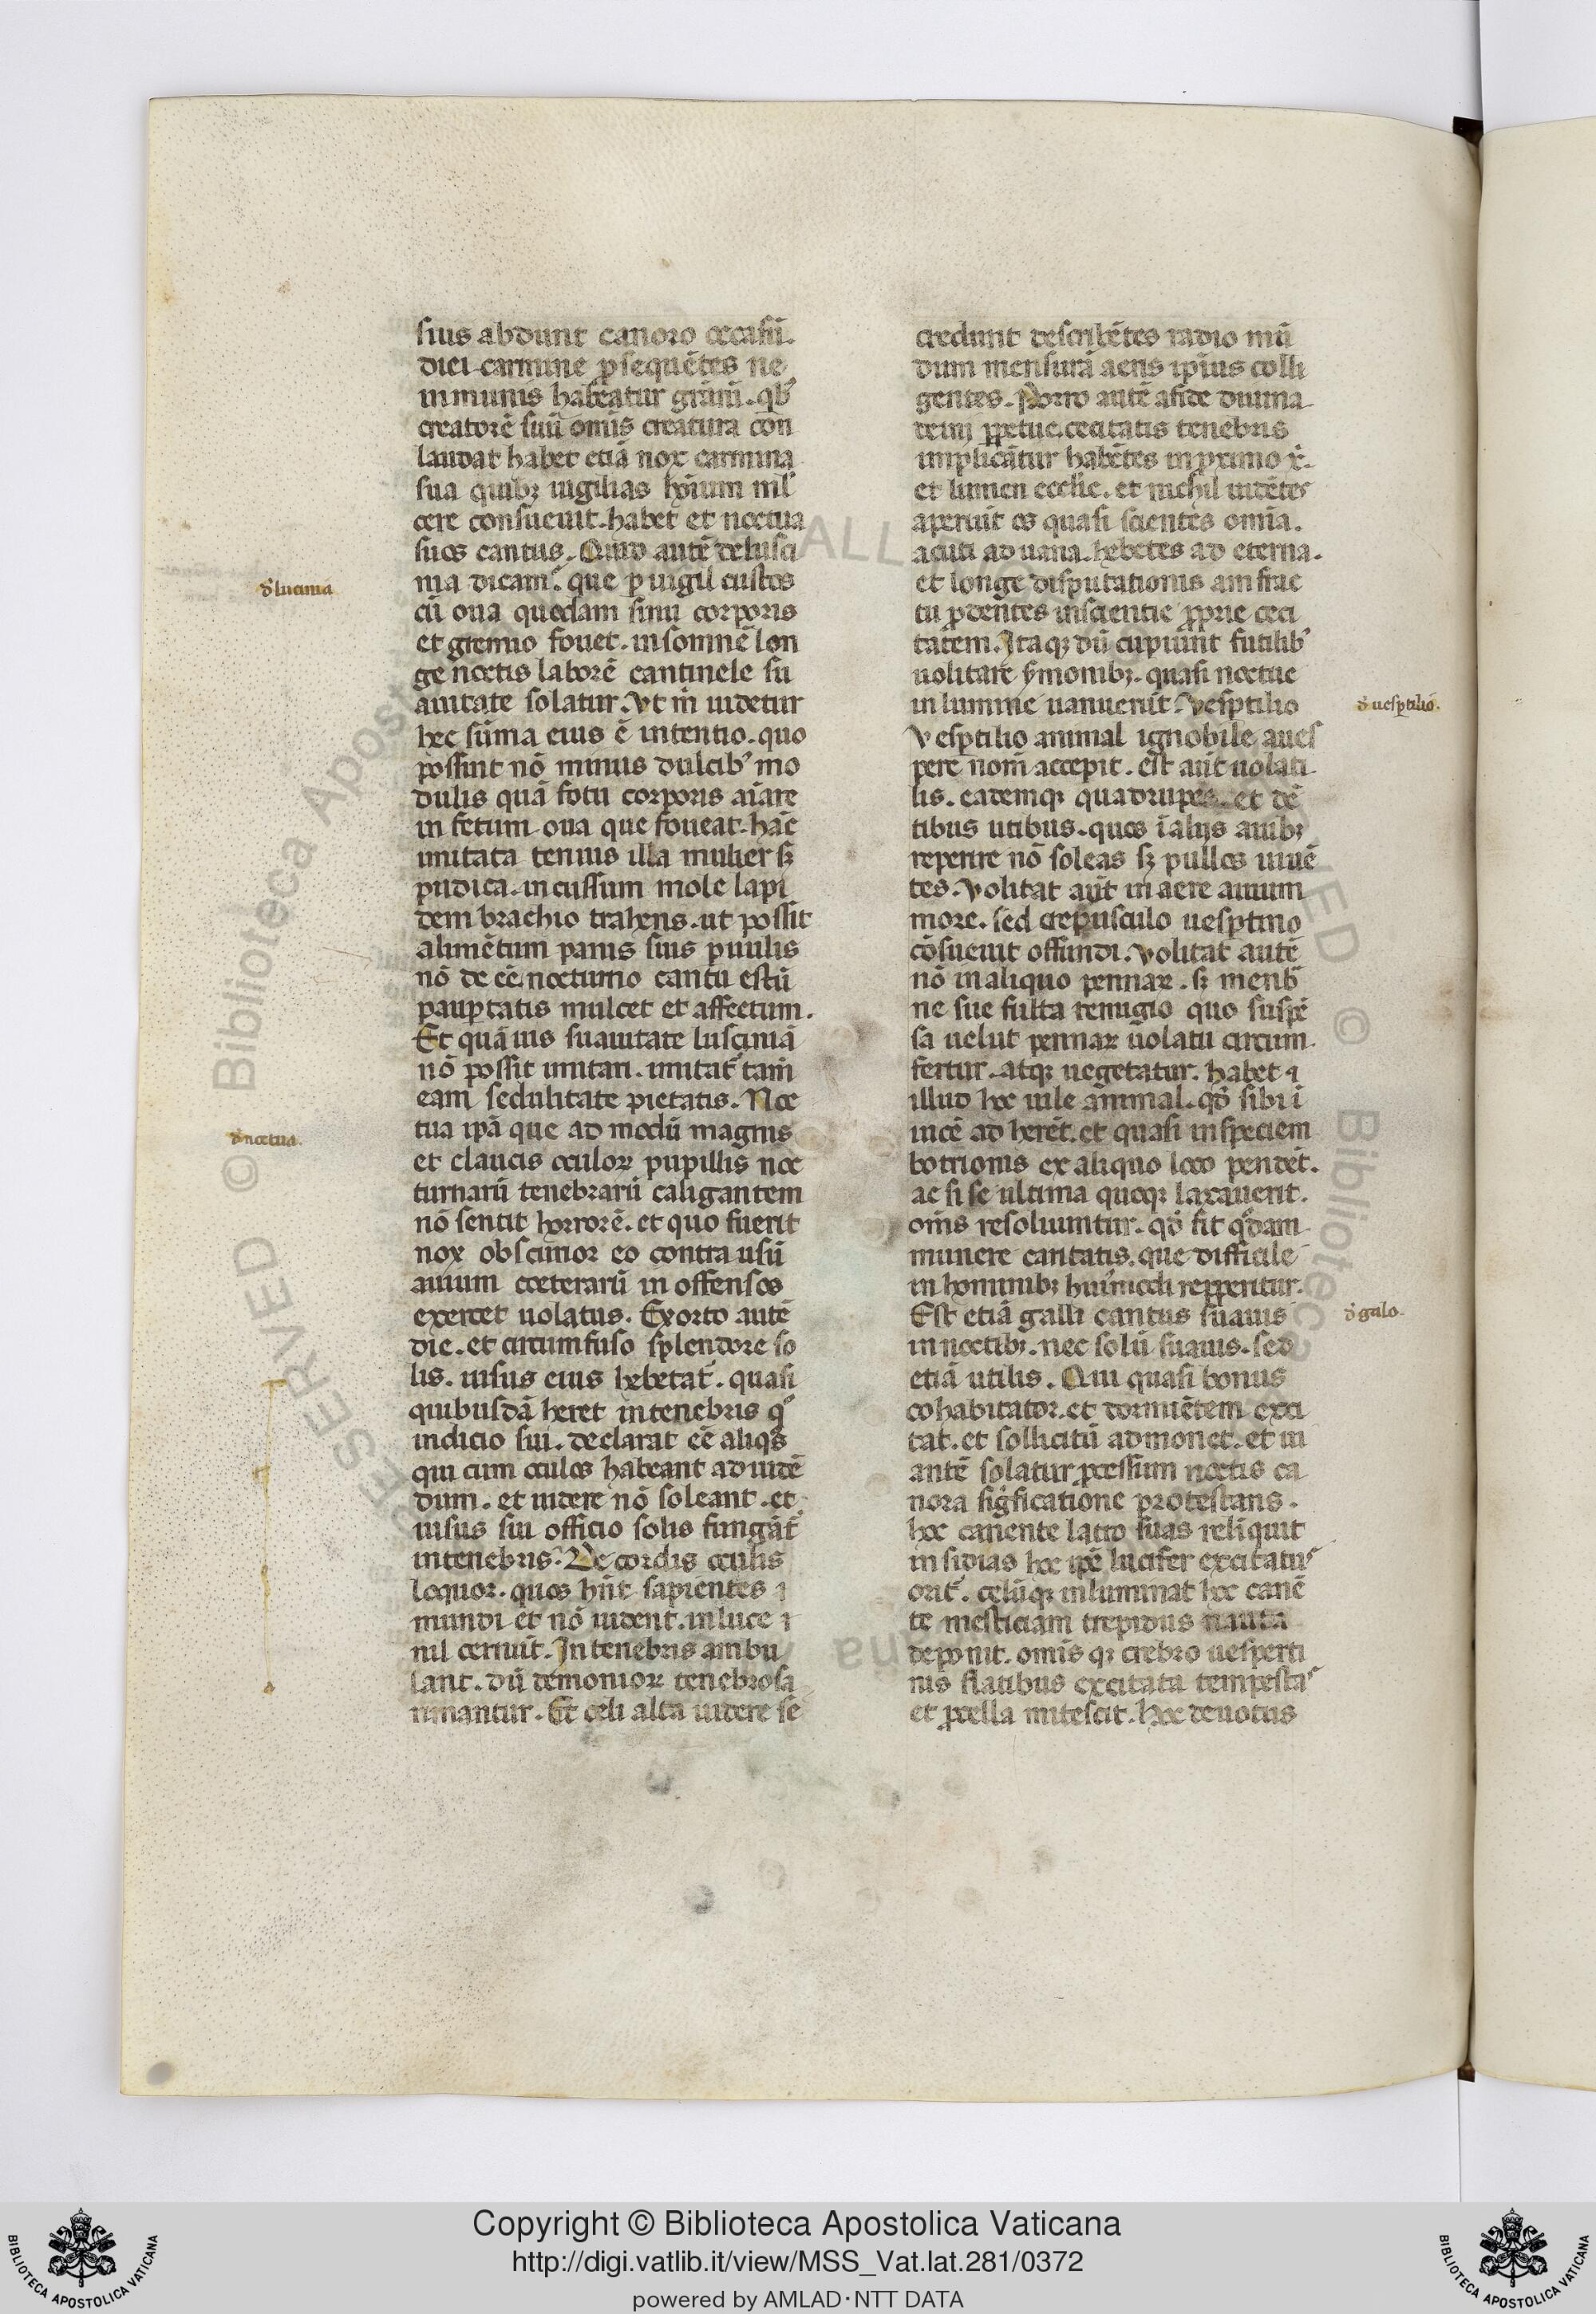 sius abdunt canoro occasū.
diei carmine ꝑsequētes ne
inmunis habeatur grān̄. qb'
creatorē suū omīs creatura con
laudat habet etiā nox carmina
sua quibꝫ uigilias hōīum ml'
cere consueuit. habet et noctua
suos cantus. Quid autē de lusci
nia dicam? que ꝑuigil custos
cū oua quodam sinu corporis
et gremio fouet. insomnē lon
ge noctis laborē cantinele su
auitate solatur. Vt m̄ uidetur
hec sūma eius ē intentio. quo
possint nō minus dulcib' mo
dulis quā fotu corporis aīare
in fetum oua que foueat. hāc
imitata tenuis illa mulier sꝫ
pudica. incussum mole lapi
dem brachio trahens. ut possit
alimētum panis suis ꝑuulis
nō de eē nocturno cantu estū
pauꝑtatis mulcet et affectum.
Et quāuis suauitate lusciniā
nō possit imitari. imitat᷑ tam̄
eam sedulitate pietatis. Noc
tua ipā que ad modū magnis
et claucis oculoꝝ pupillis noc
turnarū tenebrarū caligantem
nō sentit horrorē. et quo fuerit
nox obscurior eo contra usū
auium ceterarū in offensos
exercet uolatus. Exorto autē
die. et circumfuso splendore so
lis. uisus eius hebetat᷑. quasi
quibusdā heret in tenebris q
indicio sui. declarat eē aliqs
qui cum oculos habeant ad uidē
dum. et uidere nō soleant. et
uisus sui officio solis fungāt᷑
in tenebris. De cordis oculis
loquor. quos hn̄t sapientes ⁊
mundi et nō uident. in luce ⁊
nil cernūt. In tenebris ambu
lant. dū demonioꝝ tenebrosa
rimantur. Et celi alta uidere se
d' lucinia
d' noctua.
credunt describētes radio mū
dum mensurā aeris ipīus colli
gentes. Porro autē a fide diuina
reiuī ꝑpetue cecitatis tenebris
implicātur habētes in ꝓximo x̄.
et lumen ecclīe. et nichil uidētes
aperiūt os quasi scientes omīa.
acuti ad uana. hebetes ad eterna.
et longe disputationis amfrac
tu ꝓdentes inscientie ꝓprie ceci
tatem. Itaqꝫ dū cupiunt futilib'
uolitare s̄monibꝫ. quasi noctue
in lumine uanuerūt. Vesꝑtilio
Vesꝑtilio animal ignobile a ues
pere nom̄ accepit. est aūt uolati
lis. eademqꝫ quadrupes. et dē
tibus utibus. quos ī alijs auibꝫ
reperire nō soleas sꝫ pullos uiuē
tes. Volitat aūt in aere auium
more. sed crepusculo uesꝑtino
cōsueuit offundi. Volitat autē
nō in aliquo pennaꝝ. sꝫ menb
ne sue fulta remigio quo suspē
sa uelut pennaꝝ uolatu circum
fertur. atqꝫ uegetatur. habet ⁊
illud hoc uile animal. qd' sibi ī
uicē ad herēt. et quasi in speciem
botrionis ex aliquo loco pendēt.
ac si se ultima queqꝫ laxauerit.
oms̄ resoluuntur. qd' fit q̇dam
munere caritatis. que difficile
in hominibꝫ hui'modi repperitur.
Est etiā galli cantus suauis
in noctibꝫ. nec solū suauis. sed
etiā utilis. Qui quasi bonus
cohabitator. et dormiētem exci
tat. et sollicitū admonet. et ui
antē solatur ꝓcessum noctis ca
nora siġficatione protestans.
hoc canente latro suas relīquit
insidias hoc ipē lucifer excitatus
orit᷑. celūqꝫ inluminat hoc canē
te mesticiam trepidus nauta
deponit. omīs qꝫ crebro uesperti
nis flatibus excitata tempestas
et ꝓcella mitescit. hoc deuotus
d' uesꝑtilio.
d' galo.
Copyright © Biblioteca Apostolica Vaticana
http://digi.vatlib.it/view/MSS_Vat.lat.281/0372
powered by AMLAD·NTT DATA
BIBLIOTECA APOSTOLICA VATICANA
BIBLIOTECA APOSTOLICA VATICANA